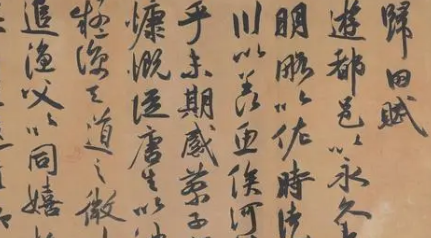 歸田賦
遊都邑以永久
明略以佐時徒
川以羨魚俟河
乎未期感蔡子
慷慨從唐生以決
疑諒天道之微
追漁父以同嬉